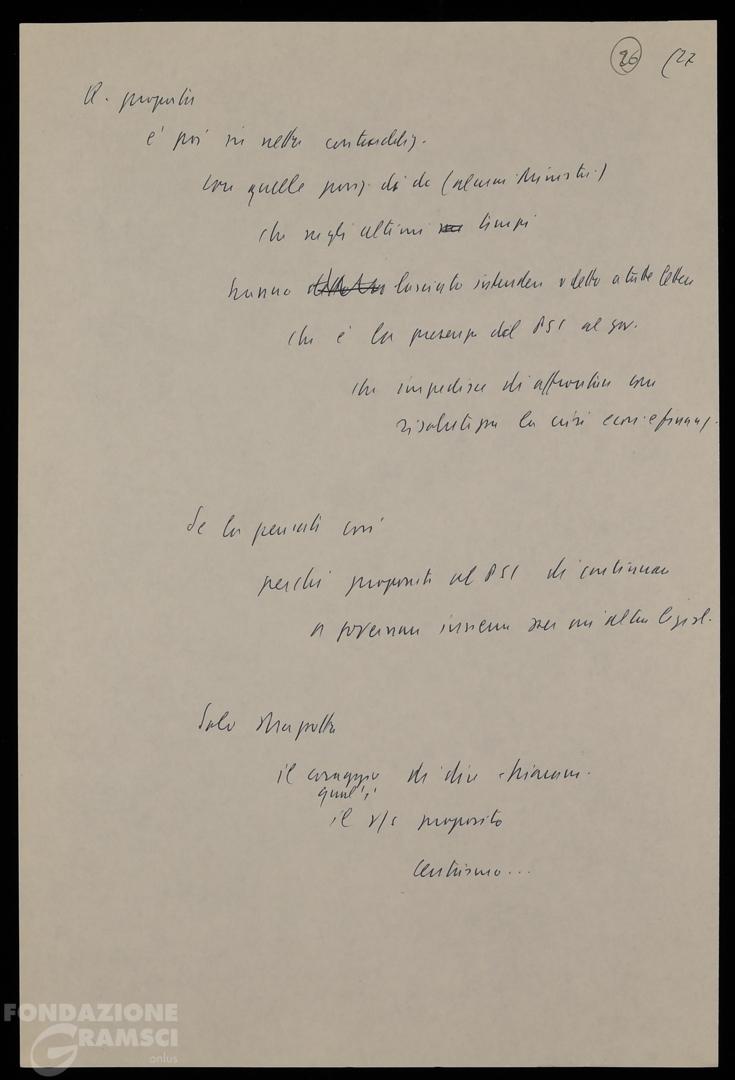 26 (27
R. proposta
è poi in netta contraddiz.
con quelle posiz. di dc (alcuni Ministri)
che negli ultimi tempi
hanno lasciato intendere o detto a tutte lettere
che è la presenza del PSI al gov.
che impedisce di affrontare con
risolutezza la crisi econ. e finanz.
Se la pensate così
perché proponete al PSI di continuare
a governare insieme per un'altra legisl.
Solo strapotto
il coraggio di dire chiaram.
qual'è
il v/s proposito
Centrismo...
FONDAZIONE
GRAMSCI
onlus